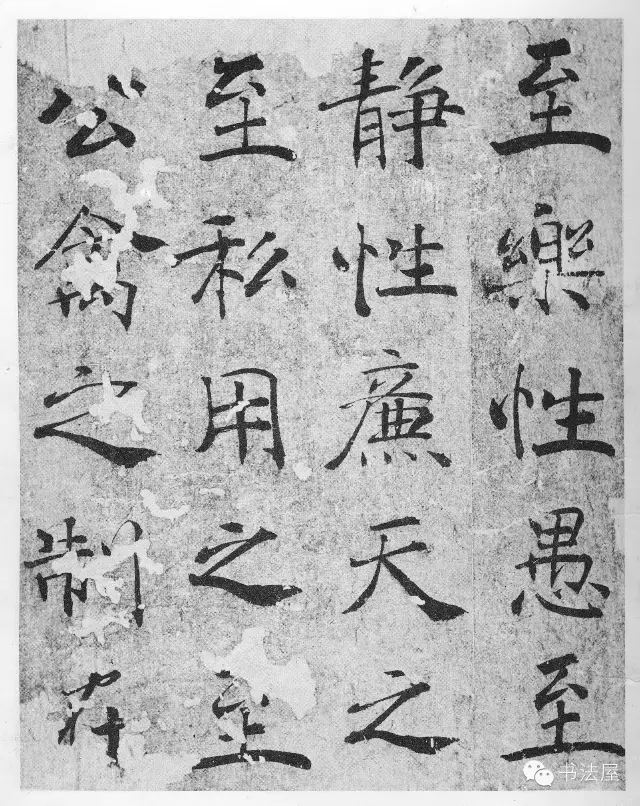 至樂性愚至
静性廉天之
至私用之至
公禽之制
书法屋